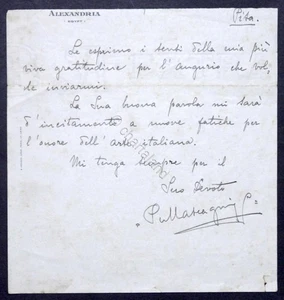 ALEXANDRIA
EGYPT
Pisa.
Le esprimo i sensi della mia più
viva gratitudine per l'augurio che vol,
le inviarmi.
La Sua buona parola mi sarà
d'incitamento a nuove fatiche per
l'onore dell'arte italiana.
Mi tenga sempre per il
Suo devoto
PMascagni